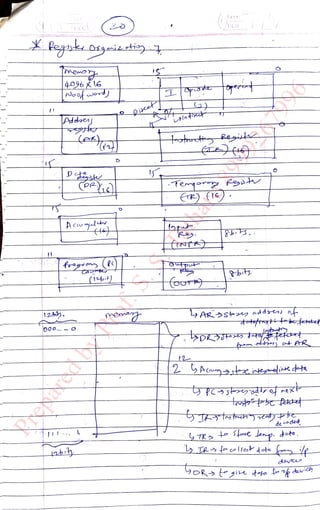 20
* Register Organization
Memory
4096 X 16
No of words
15 0
I opcode operand
(3)
Direct
Indirect
11 0
Address
register
(AR) (12)
Instruction Register
(IR) (16)
15 0
Data
register
(DR) (16)
15 0
Temporary Register
(TR) (16).
15 0
Accumulator
(16)
Input
Reg.
(INPR)
8 bits.
11 0
Program (PC)
counter
(12 bit)
output
Reg
(OUTR)
8 bits
12 bits.
000---0
memory
111... 1
12 bits
12
2
↳ AR → stores address of
data/inst to be fetched
↳ DR → stores data fetched
from address at AR
↳ Accum → store intermediate data
↳ PC → stores addr of next
inst to be fetched
↳ IR → Instruction ready to be
decoded
↳ TR → to store temp. data.
↳ IR → to collect data from i/p
device
↳ OR → to give data to o/p device
Prepared by Prof. S.